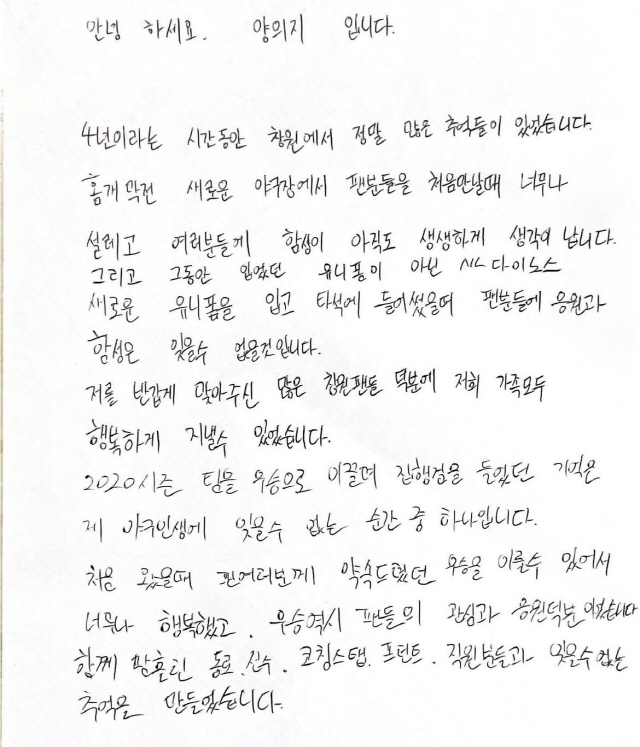 안녕 하세요. 양의지 입니다.
4년이라는 시간동안 창원에서 정말 많은 추억들이 있었습니다.
홈개막전 새로운 야구장에서 팬분들을 처음만날때 너무나
설레고 여러분들게 함성이 아직도 생생하게 생각이 납니다.
그리고 그동안 입었던 유니폼이 아닌 NC 다이노스
새로운 유니폼을 입고 타석에 들어섰을때 팬분들에 응원과
함성은 잊을수 없을것입니다.
저를 반갑게 맞아주신 많은 창원팬들 덕분에 저희 가족모두
행복하게 지낼수 있었습니다.
2020시즌 팀을 우승으로 이끌며 집행검을 들었던 기억은
제 야구인생에 잊을수 없는 순간 중 하나입니다.
처음 왔을때 팬여러분께 약속드렸던 우승을 이룰수 있어서
너무나 행복했고. 우승역시 팬들의 관심과 응원덕분이었습니다
함께 땀흘린 동료.선수. 코칭스탭. 프런트. 직원분들과 잊을수없는
추억을 만들었습니다.